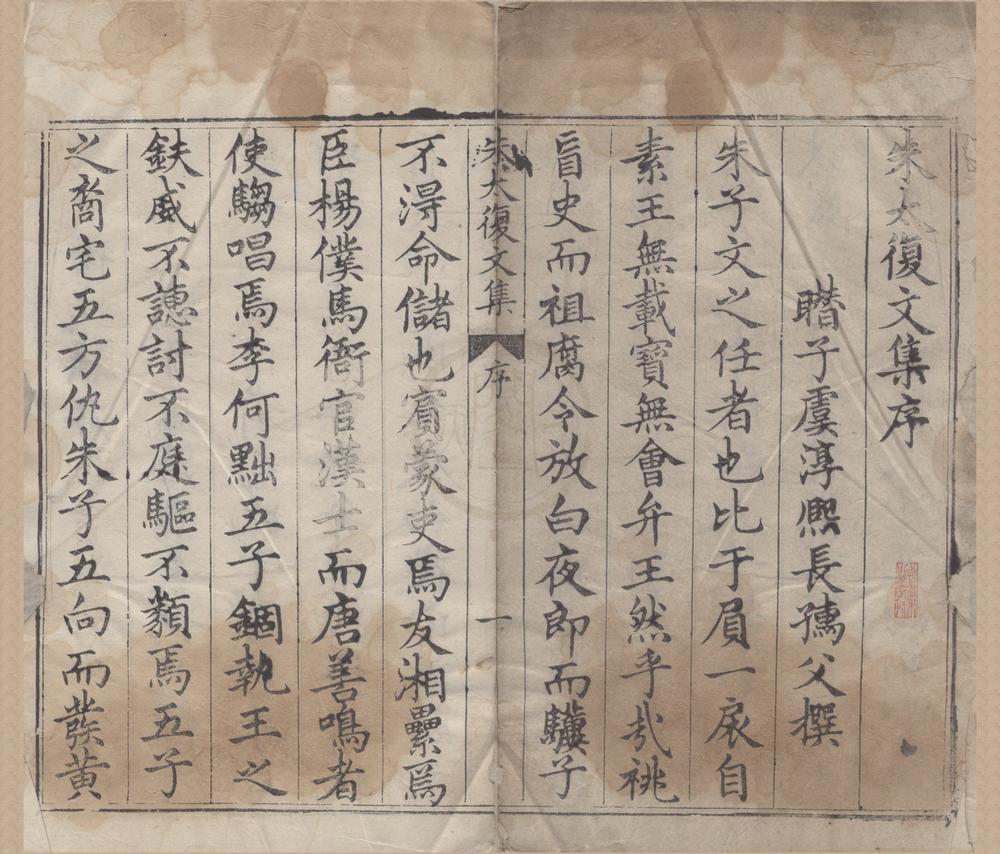 朱太復文集序
瞷子虞淳熙長孺父撰
朱子文之任者也比于員一扆自
素王無載寶無會弁王然乎㢤祧
盲史而祖腐令放白夜郎而驥子
朱太復文集 序 一
不淂命儲也賔蒙吏焉友湘纍焉
臣楊僕馬衙官漢士而唐善鳴者
使騶唱焉李何黜五子錮執王之
鈇威不譓討不庭驅不纇焉五子
之裔宅五方仇朱子五向而蔟黄